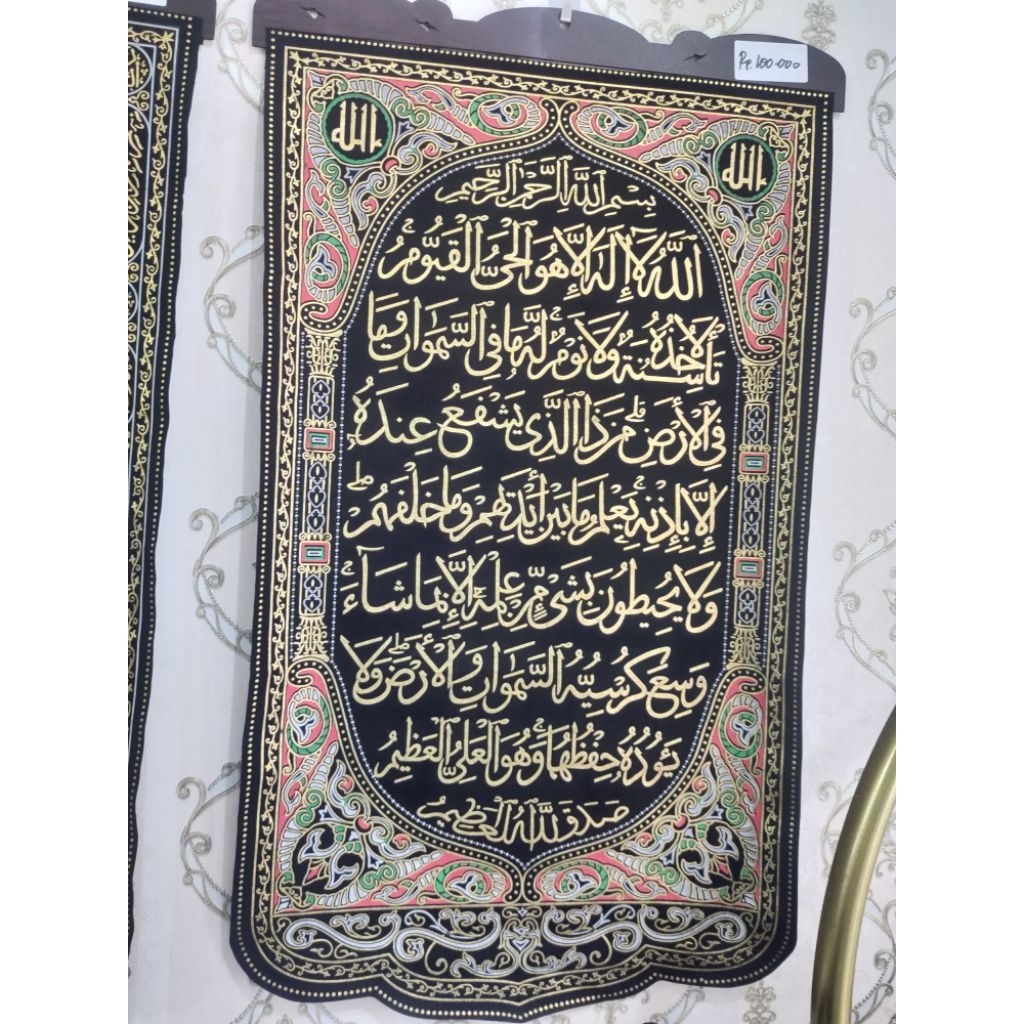 Rp. 100.000
الله
الله
بسم الله الرحمن الرحيم
الله لا إله إلا هو الحي القيوم
لا تأخذه سنة ولا نوم له ما في السموات وما
في الأرض من ذا الذي يشفع عنده
إلا بإذنه يعلم ما بين أيديهم وما خلفهم
ولا يحيطون بشيء من علمه إلا بما شاء
وسع كرسيه السموات والأرض ولا
يئوده حفظهما وهو العلي العظيم
صدق الله العظيم